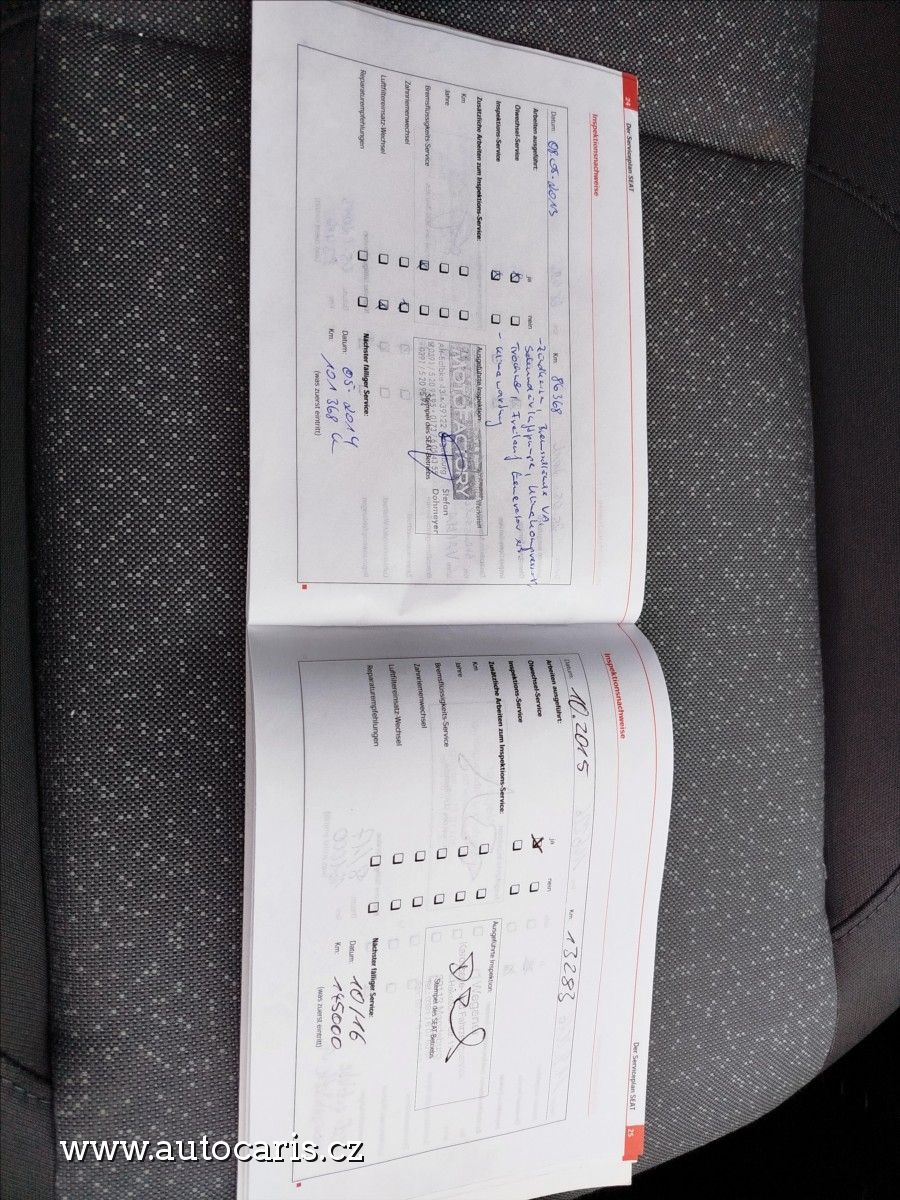 24 Der Serviceplan SEAT
Inspektionsnachweise
Datum: 08.05.2013 Km: 86368
Arbeiten ausgeführt: ja nein
Ölwechsel-Service
Inspektions-Service
Zusätzliche Arbeiten zum Inspektions-Service:
Km
Jahre
Bremsflüssigkeits-Service
Zahnriemenwechsel
Luftfiltereinsatz-Wechsel
Reparaturempfehlungen
Ausgeführte Inspektion:
Stefan
Dohmeyer
Stempel des SEAT Betriebs
Nächster fälliger Service:
Datum: 05.2014
Km: 101 368
(was zuerst eintritt)
Der Serviceplan SEAT 25
Inspektionsnachweise
Datum: 10.2015 Km: 13283
Arbeiten ausgeführt: ja nein
Ölwechsel-Service
Inspektions-Service
Zusätzliche Arbeiten zum Inspektions-Service:
Km
Jahre
Bremsflüssigkeits-Service
Zahnriemenwechsel
Luftfiltereinsatz-Wechsel
Reparaturempfehlungen
Ausgeführte Inspektion:
Stempel des SEAT Betriebs
Nächster fälliger Service:
Datum: 10/16
Km: 145000
(was zuerst eintritt)
www.autocaris.cz